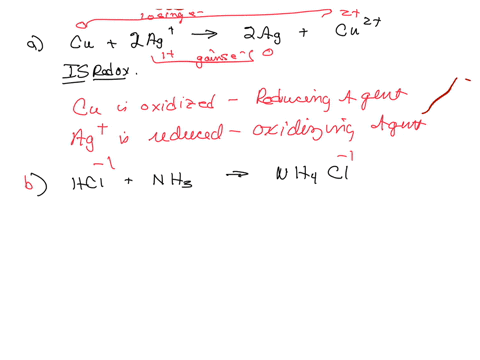 losing e-
0 2+
a) Cu + 2Ag⁺ → 2Ag + Cu²⁺
1+ gains e- 0
IS Redox.
Cu is oxidized - Reducing Agent
Ag⁺ is reduced - oxidizing Agent
-1 -1
b) HCl + NH₃ → NH₄Cl